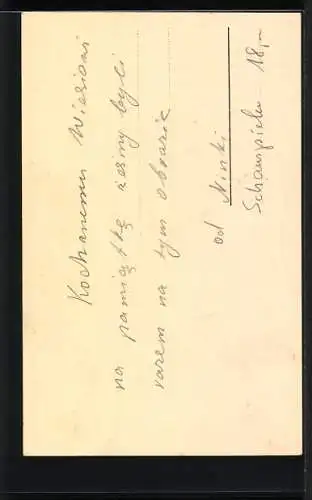 Kochanemu Wiesiowi
na pamiątkę żeśmy byli
razem na tym obrazie
od Ninki
Schauspieler 18,-